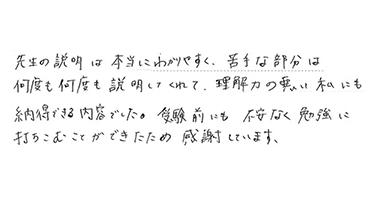 先生の説明は本当にわかりやすく、苦手な部分は
何度も何度も説明してくれて、理解力の悪い私にも
納得できる内容でした。受験前にも不安なく勉強に
打ちこむことができたため感謝しています。